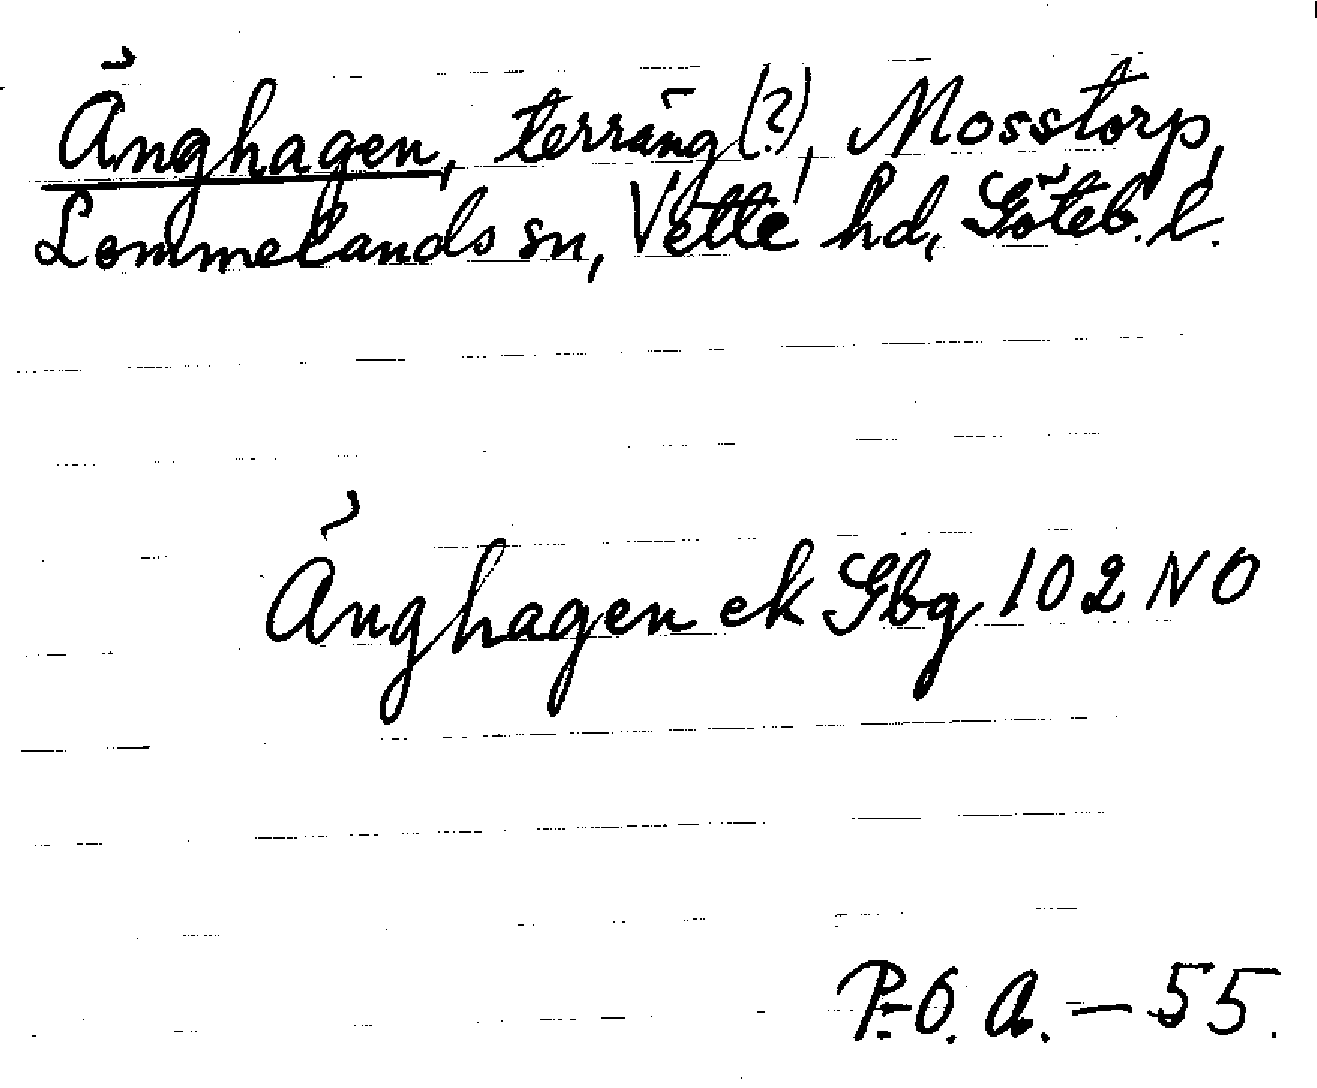 Änghagen, terräng (?), Mosstorp,
Lommelands sn, Vette hd, Göteb. l.
Änghagen ek Gbg 102 NO
P.-O. A. – 55.